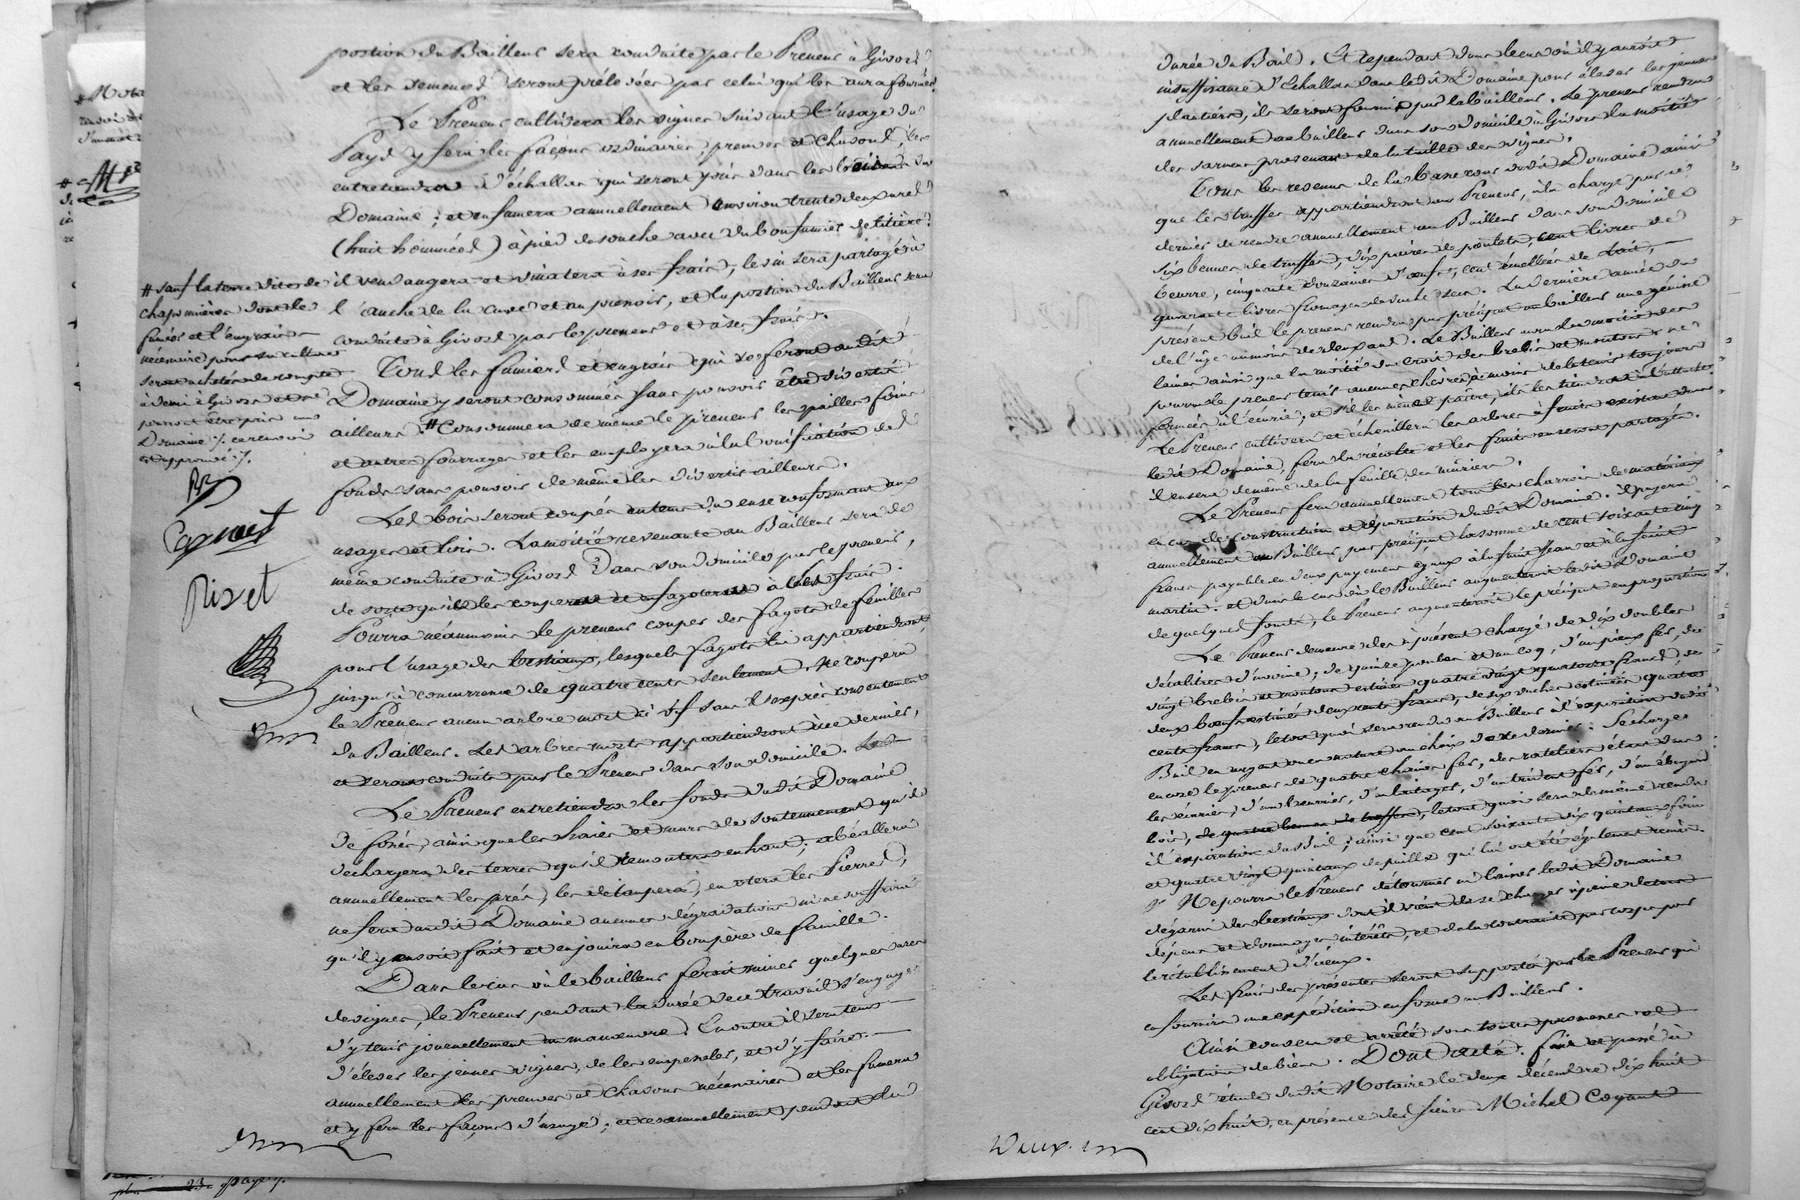 portion du Bailleur sera conduite par le Preneur à Givors
et les semences seront prélevées par celui qui les aura fournies.
Le Preneur cultivera les vignes suivant l'usage du
Pays y fera les façons ordinaires, premier et chavons, les
entretiendra d'échallas qui seront pris dans les bois du
Domaine; et enfumera annuellement environ trente deux ares
(huit hommées) à pied de souche avec du bon fumier de litière;
il vendangera et vinatera à ses frais, le vin sera partagé à
l'anche de la cuve et au pressoir, et la portion du Bailleur sera
conduite à Givors par le preneur et à ses frais.
Tous les fumiers et engrais qui se feront audit
Domaine y seront consommés sans pouvoir être divertis
ailleurs # Consommera de même le preneur les pailles foins
et autres fourrages et les employera à la bonification des
fonds sans pouvoir de même les divertir ailleurs.
# sauf la terre dite de
chaponnières dont le
fumier et l'engrais
nécessaire pour sa culture
sera acheté de compte
à demi à Givors et ne
pourra être pris au
Domaine ./. ce renvoi
est approuvé ./.
Coynet
Rivet
Les bois seront coupés en tems dû en se conformant aux
usages et lois. La moitié revenante au Bailleur sera de
même conduite à Givors dans son domicile par le preneur,
de sorte qu'il les coupera et fagotera à ses frais.
Pourra néanmoins le preneur couper des fagots de feuilles
pour l'usage des bestiaux, lesquels fagots lui appartiendront
jusqu'à concurrence de quatre cents seulement. Ne coupera
le Preneur aucun arbre mort ni vif sans l'exprès consentement
du Bailleur. Les arbres morts appartiendront à ce dernier,
et seront conduits par le Preneur dans son domicile.
Le Preneur entretiendra les fonds dudit Domaine
de fossés, ainsi que les haies et murs de soutennement qu'il
déchargera des terres qu'il remontera en haut; il béallera
annuellement les prés, les étaupera, en otera les Pierres,
ne fera audit Domaine aucunes dégradations ni ne souffrira
qu'il y en soit fait et en jouira en bon père de famille.
Dans le cas où le bailleur feroit miner quelques ares
de vignes, le Preneur pendant la durée de ce travail s'engage
d'y tenir journellement un manoeuvre. En outre il sera tenu
d'élever les jeunes vignes, de les empesseler, et d'y faire
annuellement les premier et chavons nécessaires et les fumera
et y fera les façons d'usage; et ce annuellement pendant la
durée du Bail. Et cependant dans le cas où il y auroit
insuffisance d'échallas dans ledit Domaine pour élever les jeunes
plantiers, ils seront fournis par le bailleur. Le preneur rendra
annuellement au bailleur dans son domicile à Givors la moitié
des sarmens provenans de la taille des vignes.
Tous les revenus de la basse cour dudit Domaine ainsi
que les truffes appartiendront au Preneur, à la charge par ce
dernier de rendre annuellement au Bailleur dans son domicile
six bennes de truffes, dix paires de poulets, cent livres de
beurre, cinquante douzaines d'oeufs, cent émellées de lait,
quarante livres fromages de vache sec. La dernière année du
présent bail le preneur rendra par préciput au bailleur une génisse
de l'age au moins de deux ans. Le Bailleur aura la moitié des
laines ainsi que la moitié du croit des brebis et moutons; ne
pourra le preneur tenir aucunes chèvres à moins de les tenir toujours
fermées à l'écurie, et s'il les mène paitre, de les tenir à l'attache.
Le Preneur cultivera et échenillera les arbres à fruits existans dans
ledit Domaine, fera la récolte et les fruits en seront partagés.
il en sera de même de la feuille des mûriers.
Le Preneur fera annuellement tous les charrois de matériaux
en cas de construction et réparation dudit Domaine. il payera
annuellement au Bailleur par préciput la somme de cent soixante cinq
francs payable en deux payemens égaux à la saint Jean et à la saint
martin. et dans le cas où le Bailleur augmenteroit ledit Domaine
de quelques fonds, le Preneur augmenteroit le préciput en proportion.
Le Preneur demeure dès à présent chargé de dix doubles
décalitres d'avoine, de quinze poules et un coq, d'un pieux fer, de
vingt brebis et moutons estimés quatre vingt quatorze francs, de
deux boeufs estimés deux cents francs, de six vaches estimées quatre
cents francs, le tout quoi sera rendu au Bailleur à l'expiration dudit
Bail en argent ou en nature au choix de ce dernier. Se charge
encore le preneur de quatre chaines fer, des rateliers étant dans
les écuries, d'un beurrier, d'un tarare, d'un trident fer, d'un bigot
bois, de quatre bennes de truffes, le tout quoi sera de même rendu
à l'expiration du Bail; ainsi que cent soixante dix quintaux foin
et quatre vingt quintaux de paille qui lui ont été également remis.
Ne pourra le Preneur détourner ni laisser ledit Domaine
dégarni des bestiaux dont il vient de se charger à peine de tous
dépens et dommages intérêts, et de la contrainte par corps pour
le rétablissement d'iceux.
Les frais des présentes seront supportés par le Preneur qui
en fournira une expédition en forme au Bailleur.
Ainsi convenu et arrêté sous toutes promesses et
obligations de biens. Dont acte. fait et passé à
Givors étude dudit Notaire le deux décembre dix huit
cent dix huit, en présence des sieurs Michel Coyant
Deux.